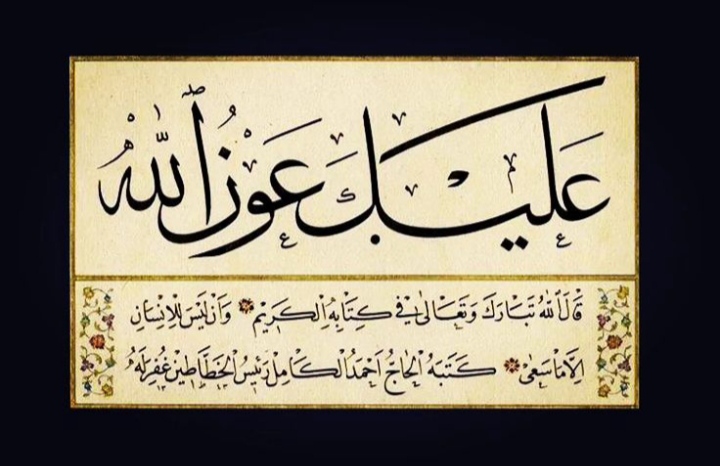 عَلَيْكَ عَوْنُ ٱللّٰه
قَالَ اللّٰهُ تَبَارَكَ وَتَعَالٰى فِي كِتَابِهِ الْكَرِيمِ وَاَنْ لَيْسَ لِلْاِنْسَانِ
اِلَّا مَا سَعٰى كَتَبَهُ الْحَاجُّ اَحْمَدُ الْكَامِلُ رَئِيسُ الْخَطَّاطِينَ غُفِرَ لَهُ